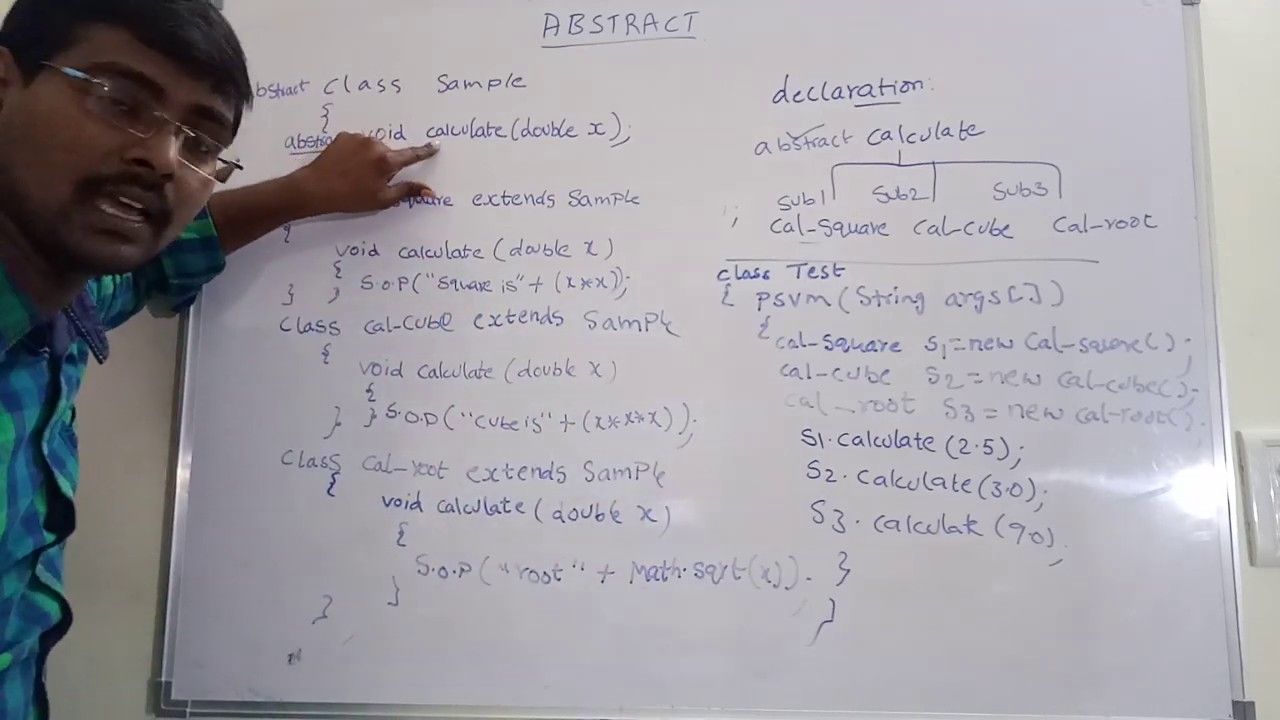 ABSTRACT
bstract class Sample
{
abstra void calculate(double x);
square extends Sample
{
void calculate (double x)
{
S.O.P("Square is"+ (x*x));
} ;
Class cal-cube extends Sample
{
void calculate (double x)
{
} } S.O.P("Cube is"+(x*x*x));
Class Cal-root extends Sample
{
void calculate (double x)
{
S.O.P("root" + Math.sqrt(x)).
}
}
declaration:
abstract calculate
Sub1 Sub2 Sub3
; Cal-Square Cal-Cube Cal-root
class Test
{ psvm(String args[])
{ cal-square S1=new Cal-square();
cal-cube S2=new Cal-cube();
cal-root S3=new Cal-root();
S1.calculate (2.5);
S2.calculate (3.0);
S3.calculate (90),
}
}